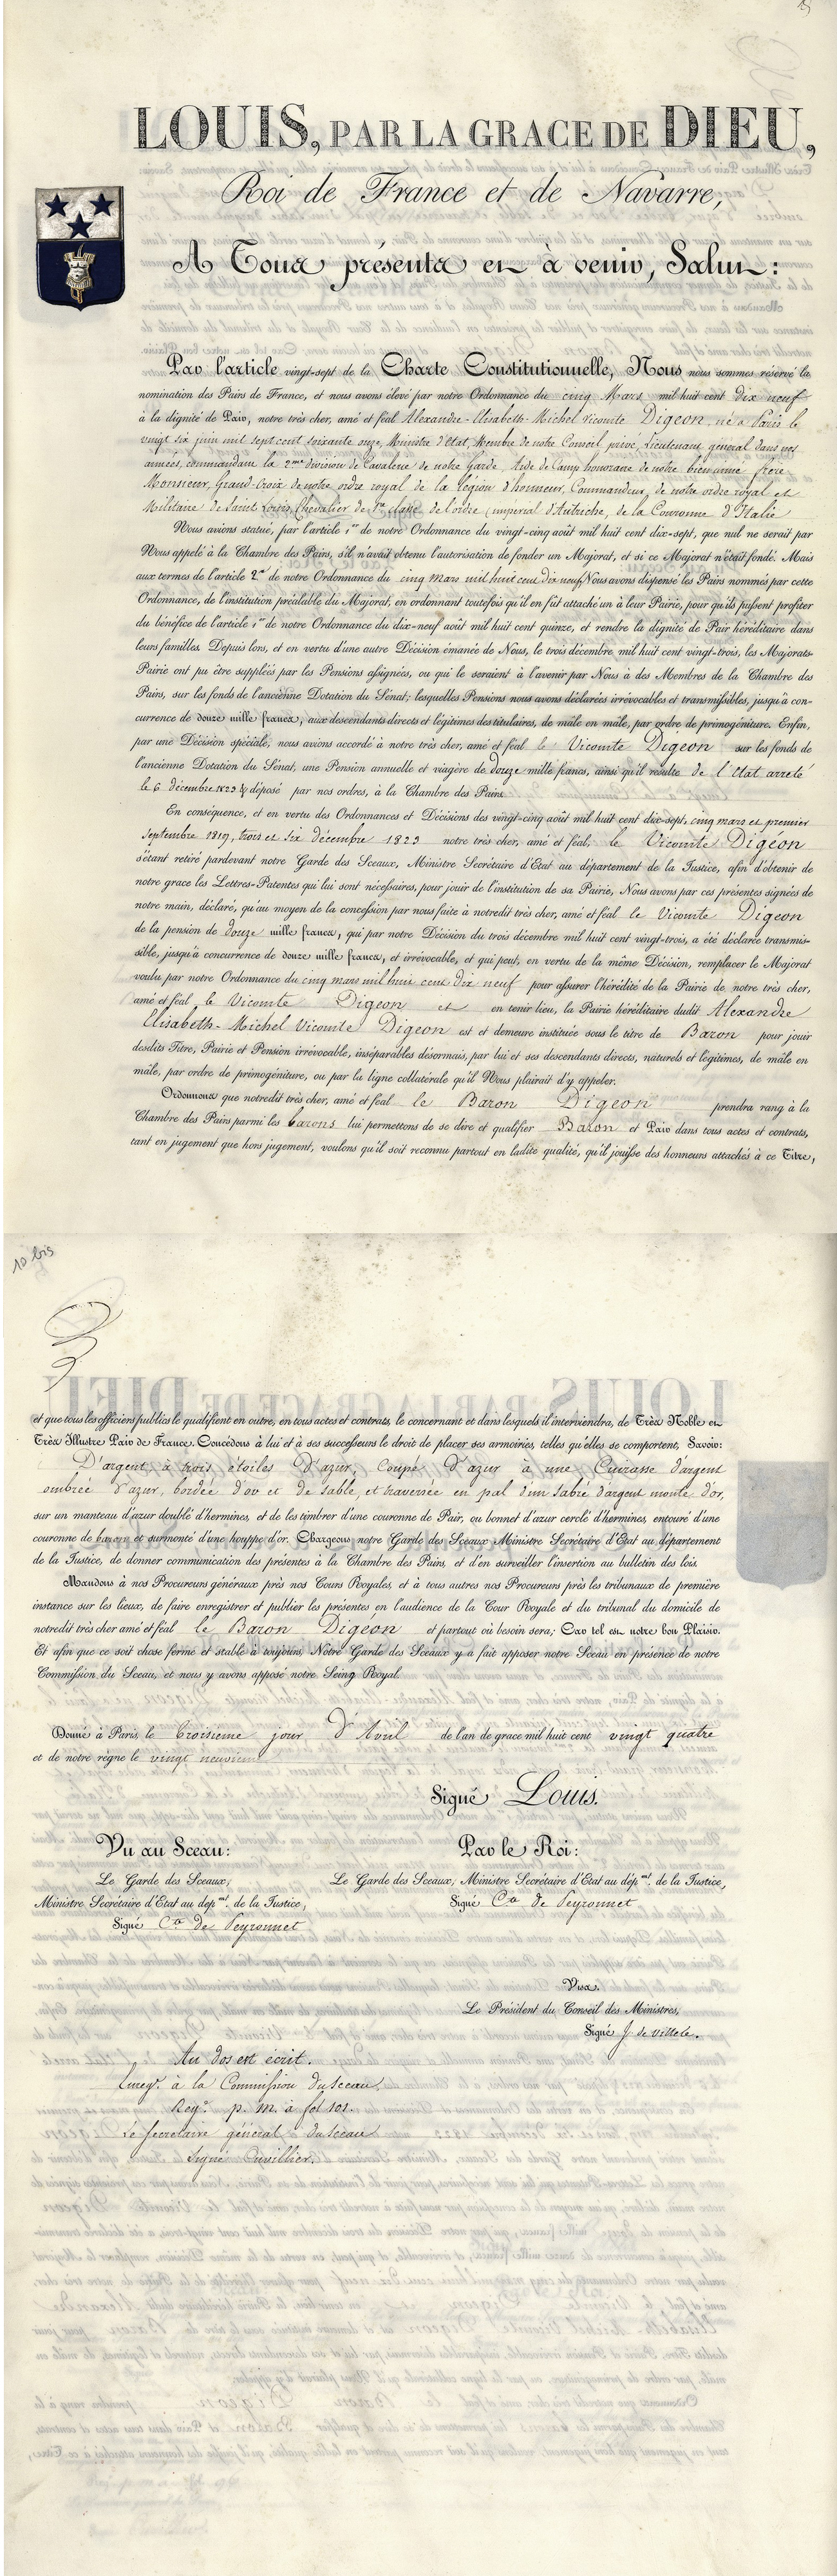 LOUIS, PAR LA GRACE DE DIEU,
Roi de France et de Navarre,
A Tous présents et à venir, Salut:
Par l'article vingt-sept de la Charte Constitutionnelle, Nous nous sommes réservé la
nomination des Pairs de France, et nous avons élevé par notre Ordonnance du cinq Mars mil huit cent dix neuf
à la dignité de Pair, notre très cher, amé et féal Alexandre-Elisabeth-Michel Vicomte Digeon né à Paris le
vingt six juin mil sept cent soixante onze, Ministre d'Etat, Membre de notre Conseil privé, Lieutenant général dans nos
armées, commandant la 2me division de Cavalerie de notre Garde, Aide de Camp honoraire de notre bien aimé frère
Monsieur, Grand-Croix de notre ordre royal de la légion d'honneur, Commandeur de notre ordre royal et
Militaire de Saint Louis, Chevalier de 1re classe de l'ordre impérial d'Autriche, de la Couronne d'Italie
Nous avons statué, par l'article 1er de notre Ordonnance du vingt-cinq août mil huit cent dix-sept, que nul ne serait par
Nous appelé à la Chambre des Pairs, s'il n'avait obtenu l'autorisation de fonder un Majorat, et si ce Majorat n'était fondé. Mais
aux termes de l'article 2me de notre Ordonnance du cinq mars mil huit cent dix neuf Nous avons dispensé les Pairs nommés par cette
Ordonnance, de l'institution préalable du Majorat, en ordonnant toutefois qu'il en fût attaché un à leur Pairie, pour qu'ils pussent profiter
du bénéfice de l'article 1er de notre Ordonnance du dix-neuf août mil huit cent quinze, et rendre la dignité de Pair héréditaire dans
leurs familles. Depuis lors, et en vertu d'une autre Décision émanée de Nous, le trois décembre mil huit cent vingt-trois, les Majorats-
Pairie ont pu être suppléés par les Pensions assignées, ou qui le seraient à l'avenir par Nous à des Membres de la Chambre des
Pairs, sur les fonds de l'ancienne Dotation du Sénat; lesquelles Pensions nous avons déclarées irrévocables et transmissibles, jusqu'à con-
currence de douze mille francs, aux descendants directs et légitimes des titulaires, de mâle en mâle, par ordre de primogéniture. Enfin,
par une Décision spéciale, nous avions accordé à notre très cher, amé et féal le Vicomte Digeon sur les fonds de
l'ancienne Dotation du Sénat, une Pension annuelle et viagère de douze mille francs, ainsi qu'il résulte de l'Etat arreté
le 6 décembre 1823 & déposé par nos ordres, à la Chambre des Pairs
En conséquence, et en vertu des Ordonnances et Décisions des vingt-cinq août mil huit cent dix-sept, cinq mars et premier
Septembre 1819, trois et six décembre 1823 notre très cher, amé et féal, le Vicomte Digéon
s'étant retiré pardevant notre Garde des Sceaux, Ministre Secrétaire d'Etat au département de la Justice, afin d'obtenir de
notre grace les Lettres-Patentes qui lui sont nécessaires, pour jouir de l'institution de sa Pairie, Nous avons par ces présentes signées de
notre main, déclaré, qu'au moyen de la concession par nous faite à notredit très cher, amé et féal le Vicomte Digeon
de la pension de douze mille francs, qui par notre Décision du trois décembre mil huit cent vingt-trois, a été déclarée transmis-
sible, jusqu'à concurrence de douze mille francs, et irrévocable, et qui peut, en vertu de la même Décision, remplacer le Majorat
voulu par notre Ordonnance du cinq mars mil huit cent dix neuf pour assurer l'hérédité de la Pairie de notre très cher,
amé et féal, le Vicomte Digeon et en tenir lieu, la Pairie héréditaire dudit Alexandre
Elisabeth-Michel Vicomte Digeon est et demeure instituée sous le titre de Baron pour jouir
desdits Titre, Pairie et Pension irrévocable, inséparables désormais, par lui et ses descendants directs, naturels et légitimes, de mâle en
mâle, par ordre de primogéniture, ou par la ligne collatérale qu'il Nous plairait d'y appeler.
Ordonnons que notredit très cher, amé et féal le Baron Digeon prendra rang à la
Chambre des Pairs parmi les barons lui permettons de se dire et qualifier Baron et Pair dans tous actes et contrats,
tant en jugement que hors jugement, voulons qu'il soit reconnu partout en ladite qualité, qu'il jouisse des honneurs attachés à ce Titre,
10 bis
et que tous les officiers publics le qualifient en outre, en tous actes et contrats, le concernant et dans lesquels il interviendra, de Très Noble et
Très Illustre Pair de France. Concédons à lui et à ses successeurs le droit de placer ses armoiries, telles qu'elles se comportent, Savoir:
D'argent à trois étoiles d'azur, Coupé d'azur à une Cuirasse d'argent
ombrée d'azur, bordée d'or et de sable, et traversée en pal d'un sabre d'argent monté d'or,
sur un manteau d'azur doublé d'hermines, et de les timbrer d'une couronne de Pair, ou bonnet d'azur cerclé d'hermines, entouré d'une
couronne de baron et surmonté d'une houppe d'or. Chargeons notre Garde des Sceaux Ministre Secrétaire d'Etat au département
de la Justice, de donner communication des présentes à la Chambre des Pairs, et d'en surveiller l'insertion au bulletin des lois.
Mandons à nos Procureurs généraux près nos Cours Royales, et à tous autres nos Procureurs près les tribunaux de première
instance sur les lieux, de faire enregistrer et publier les présentes en l'audience de la Cour Royale et du tribunal du domicile de
notredit très cher amé et féal le Baron Digéon et partout où besoin sera; Car tel est notre bon Plaisir.
Et afin que ce soit chose ferme et stable à toujours, Notre Garde des Sceaux y a fait apposer notre Sceau en présence de notre
Commission du Sceau, et nous y avons apposé notre Seing Royal.
Donné à Paris, le Troisième jour d'Avril de l'an de grace mil huit cent vingt quatre
et de notre règne le vingt neuvième
Signé Louis.
Vu au Sceau: Par le Roi:
Le Garde des Sceaux, Le Garde des Sceaux, Ministre Secrétaire d'Etat au dépmt. de la Justice,
Ministre Secrétaire d'Etat au depmt. de la Justice, Signé Cte de Peyronnet
Signé Cte de Peyronnet
Visa.
Le Président du Conseil des Ministres,
Signé J. de Villele.
Au dos est écrit.
Enregé. à la Commission du Sceau.
Regé. p. m. à fol 101.
Le Secretaire général du Sceau
Signé Cuvillier.